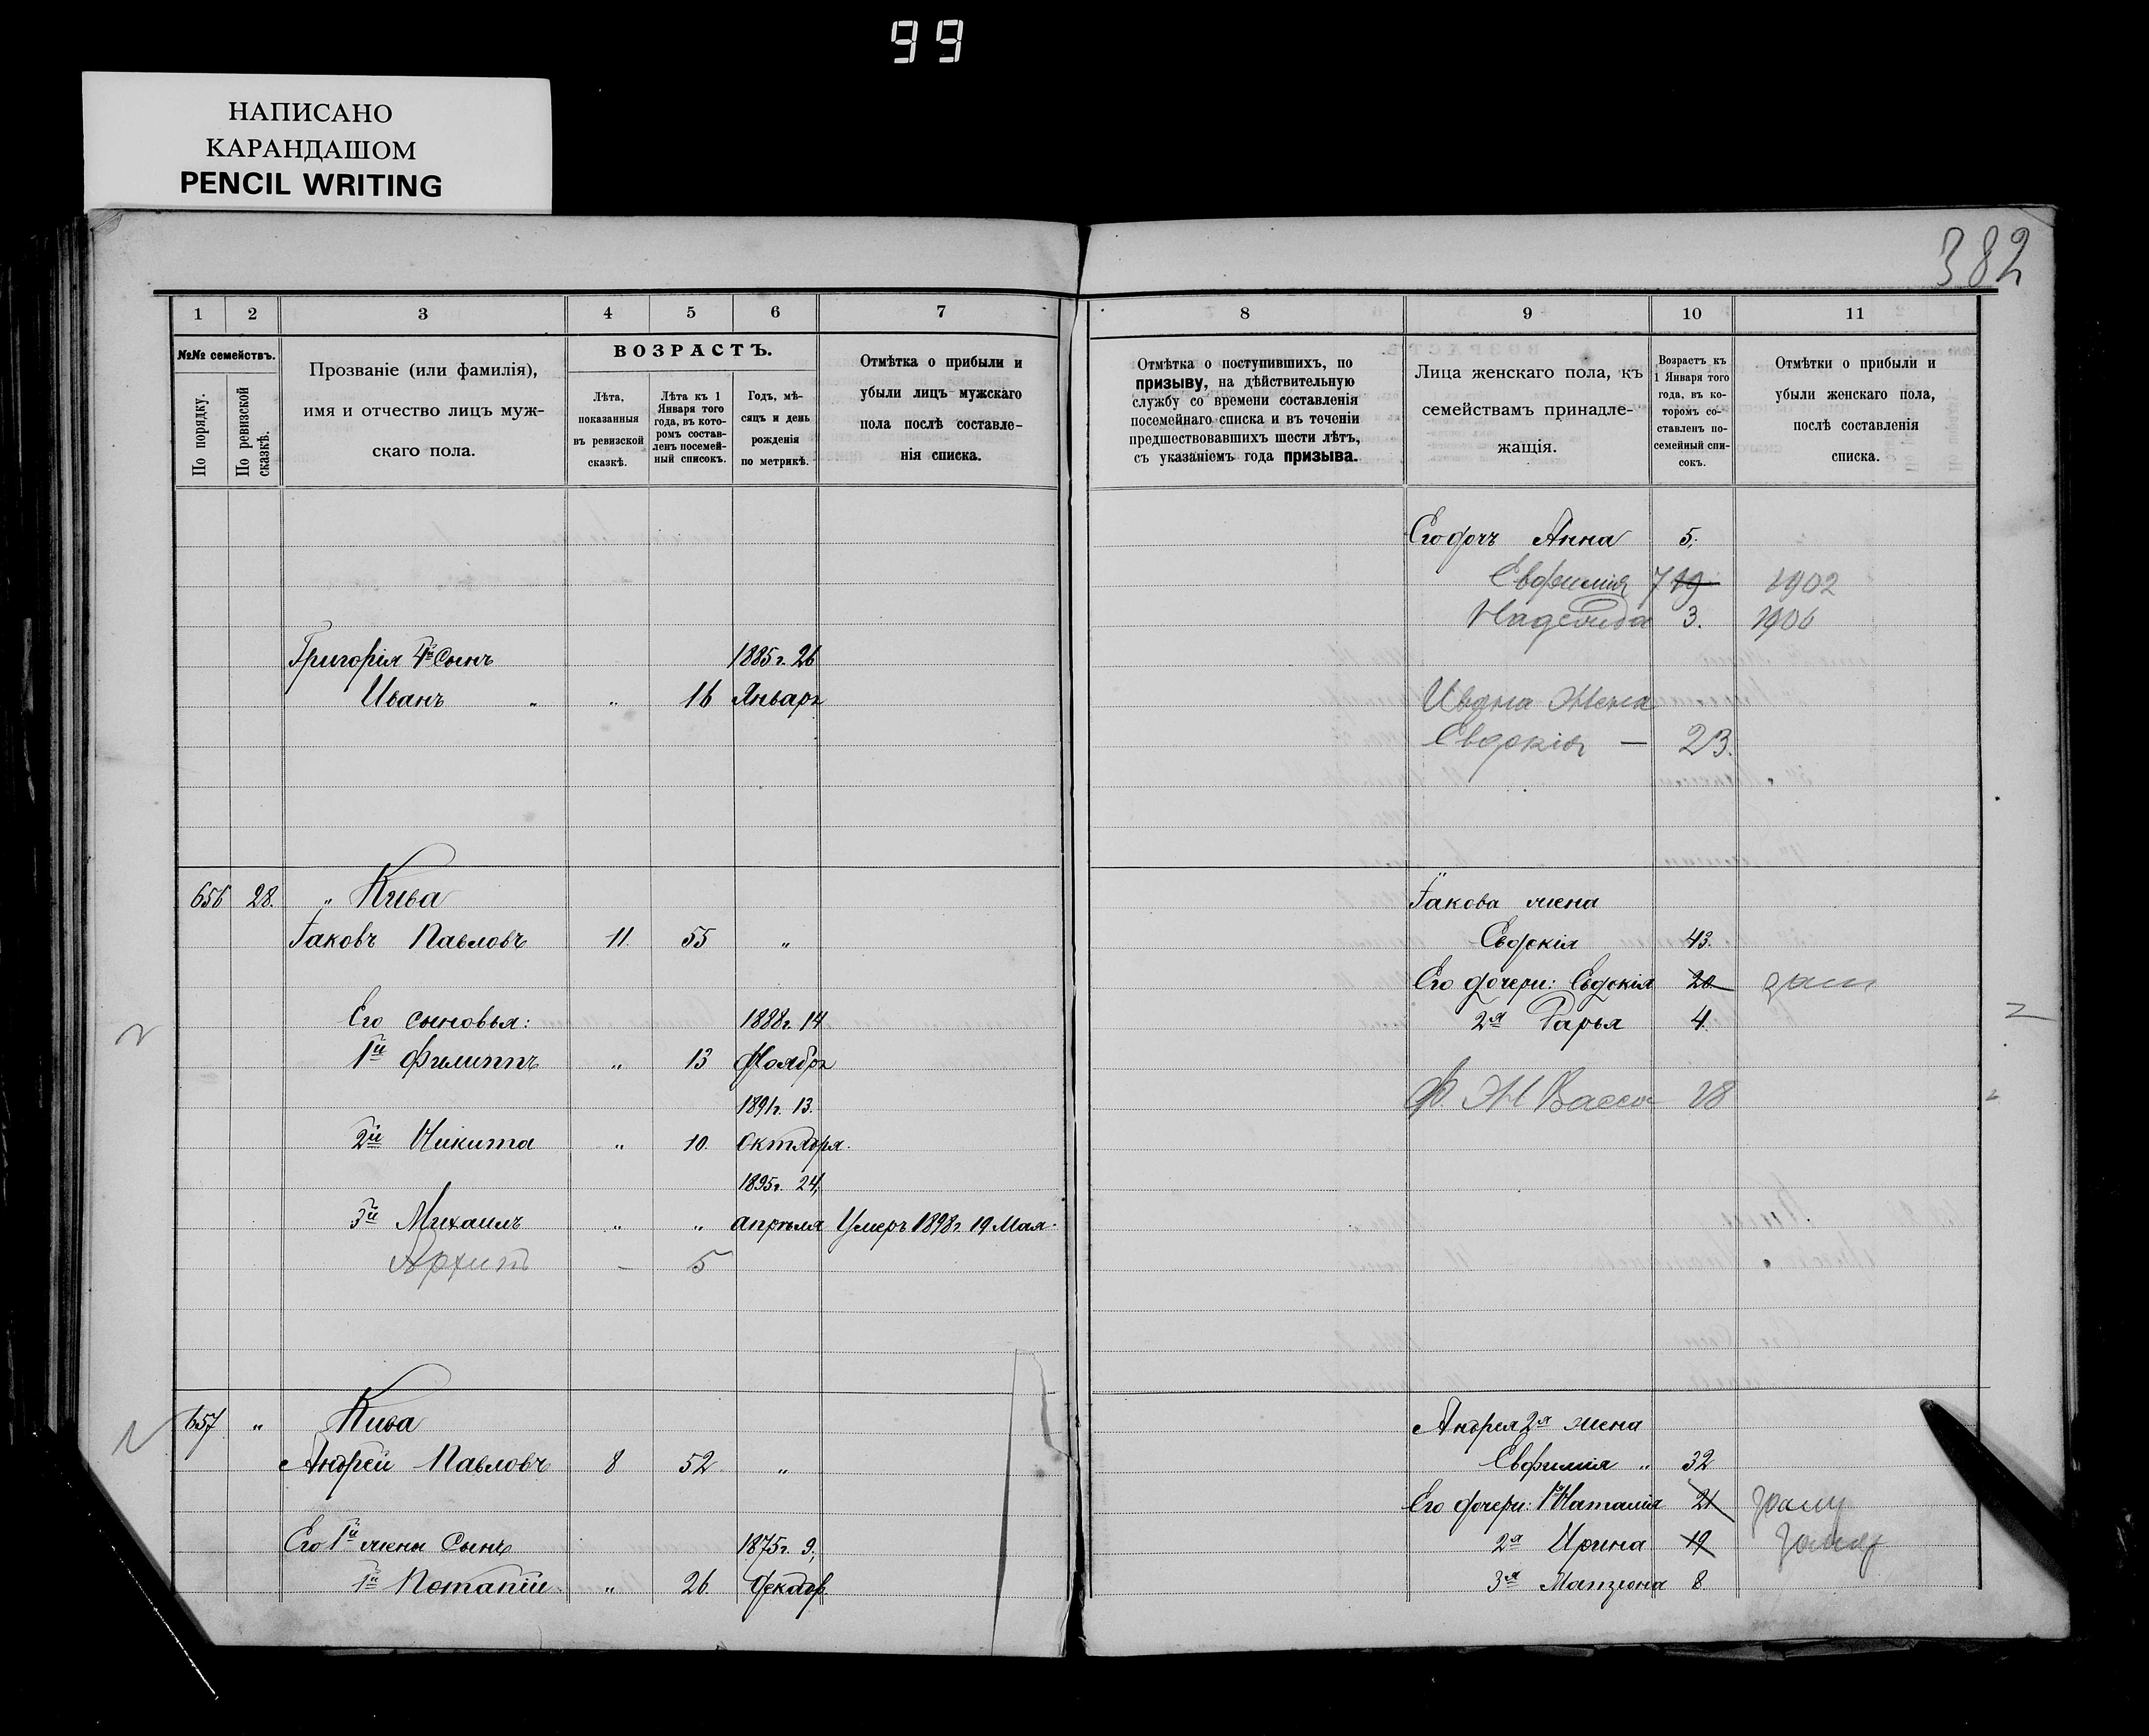 99
НАПИСАНО
КАРАНДАШОМ
PENCIL WRITING
382
1 2 3 4 5 6 7
№№ семействъ.
По порядку.
По ревизской сказкѣ.
Прозваніе (или фамилія),
имя и отчество лицъ муж-
скаго пола.
ВОЗРАСТЪ.
Лѣта,
показанныя
въ ревизской
сказкѣ.
Лѣта къ 1
Января того
года, въ кото-
ромъ состав-
ленъ посемей-
ный списокъ.
Годъ, мѣ-
сяцъ и день
рожденія
по метрикѣ.
Отмѣтка о прибыли и
убыли лицъ мужскаго
пола послѣ составле-
нія списка.
Григорія 4й Сынъ 1885 г. 26
Иванъ „ „ 16 Январ
656 28. „ Кива
Іаковъ Павловъ 11. 55 „
Его сыновья: 1888 г. 14
1й Филиппъ „ 13 Ноябр
1891 г. 13.
2й Никита „ 10. Октября.
1895 г. 24,
3й Михаилъ „ „ апрѣля Умеръ 1898 г. 19 Мая.
Архип — 5
657 „ Кива
Андрей Павловъ 8 52 „
Его 1й жены Сынъ 1875 г. 9,
1й Потапій „ 26 Декабр.
8 9 10 11
Отмѣтка о поступившихъ, по
призыву, на дѣйствительную
службу со времени составленія
посемейнаго списка и въ теченіи
предшествовавшихъ шести лѣтъ,
съ указаніемъ года призыва.
Лица женскаго пола, къ
семействамъ принадле-
жащія.
Возрастъ къ
1 Января того
года, въ ко-
торомъ со-
ставленъ по-
семейный спи-
сокъ.
Отмѣтки о прибыли и
убыли женскаго пола,
послѣ составленія
списка.
Его дочъ Анна 5.
Евфимия 7 19 1902
Надежда 3. 1906
Ивана Жена
Евдокія — 23.
Іакова жена
Евдокія 43.
Его дочери: Евдокія 20 зам
2я Дарья 4.
Ф. Ж Васса 28
Андрея 2я жена
Евфимия „ 32
Его дочери: 1я Наталия 21 зам
2я Ирина 19 зам
3я 8